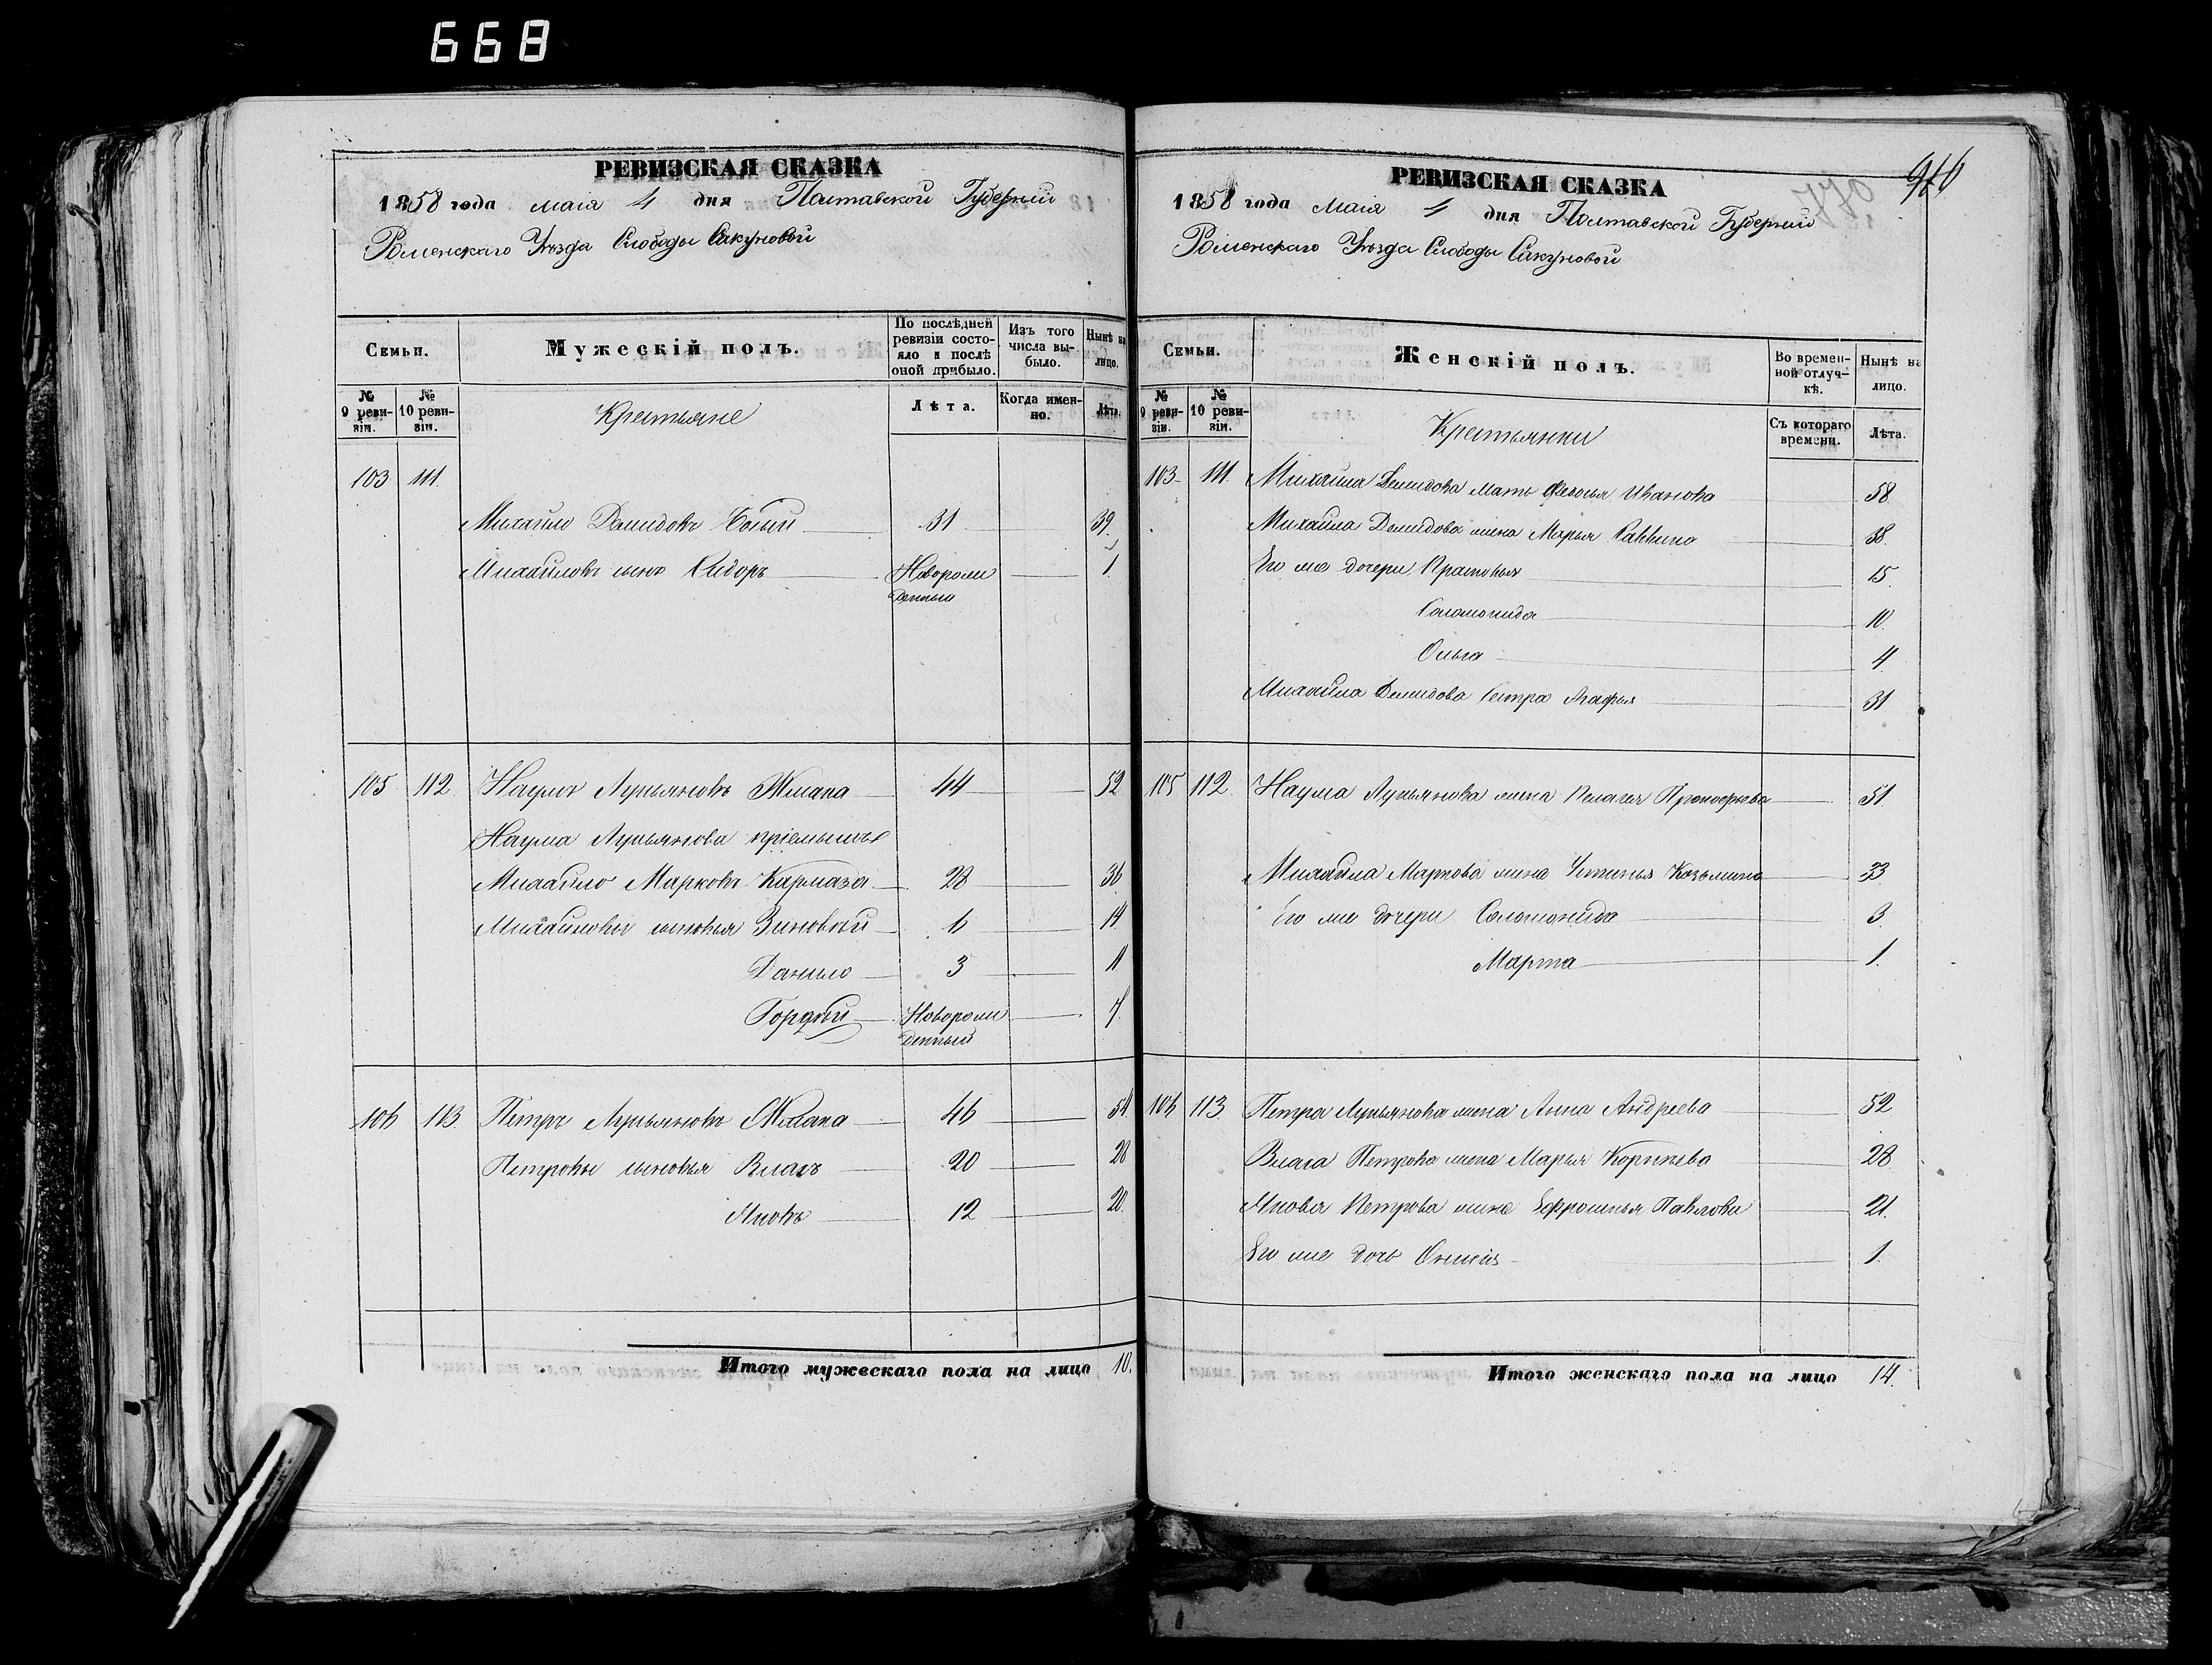 668
РЕВИЗСКАЯ СКАЗКА
1858 года мая 4 дня Полтавской Губернии
Роменскаго Уѣзда Слободы Сакуновой
Семьи.
Мужескій полъ.
По послѣдней ревизіи состояло и послѣ оной прибыло.
Изъ того числа выбыло.
Нынѣ на лицо.
№ 9 ревизіи.
№ 10 ревизіи.
Крестьяне
Лѣта.
Когда именно.
Лѣта.
103 111.
Михайло Демидовъ 31 39.
Михайловъ сынъ Сидоръ Новорожденный 1.
105 112 Наумъ Лукьяновъ Жмака 44 52
Наума Лукьянова пріемышъ
Михайло Марковъ Кармаза 28 36
Михайловы сыновья Зиновій 6 14
Данило 3 11
Гордѣй Новорожденный 7.
106 113 Петръ Лукьяновъ Жмака 46 54
Петровы сыновья Власъ 20 28
Яковъ 12 20.
Итого мужескаго пола на лицо 10.
916
770
РЕВИЗСКАЯ СКАЗКА
1858 года Мая 4 дня Полтавской Губерніи
Роменскаго Уѣзда Слободы Сакуновой
Семьи.
Женскій полъ.
Во временной отлучкѣ.
Нынѣ на лицо.
№ 9 ревизіи.
№ 10 ревизіи.
Крестьянки
Съ котораго времени.
Лѣта.
103 111. Михайла Демидова мать Федосья Иванова 58
Михайла Демидова жена Марья Саввина 38.
Его же дочери Прасковья 15.
Соломонида 10.
Ольга 4
Михайла Демидова Сестра Агафья 31
105 112. Наума Лукьянова жена Пелагея Прокофьева 51.
Михайла Маркова жена Устинья Козьмина 33.
Его же дочери Соломонида 3.
Марта 1.
106 113 Петра Лукьянова жена Анна Андреева 52
Власа Петрова жена Марья Корнѣева 28
Якова Петрова жена Ефросинья Павлова 21.
Его же дочь Онисія 1.
Итого женскаго пола на лицо 14.